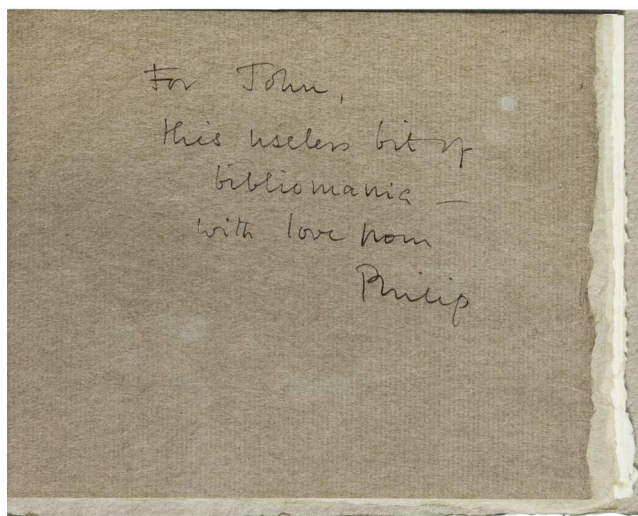 For John,
this useless bit of
bibliomania –
with love from
Philip